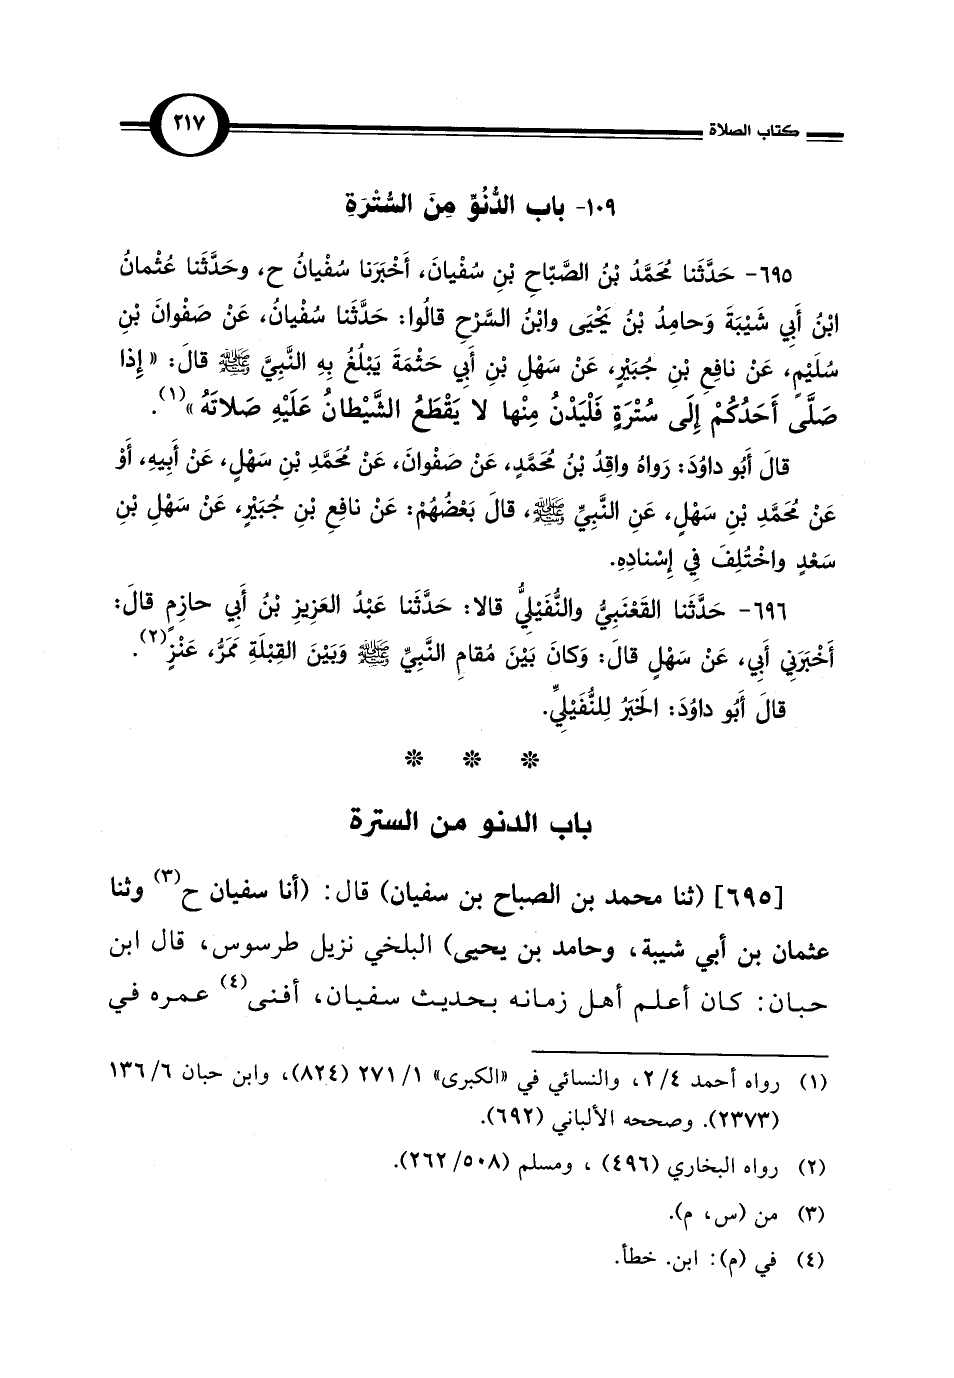 كتاب الصلاة ٢١٧
١٠٩- باب الدُّنُوِّ مِنَ السُّتْرَةِ
٦٩٥- حَدَّثَنا مُحَمَّدُ بْنُ الصَّبّاحِ بْنِ سُفْيانَ، أَخْبَرَنا سُفْيانُ ح، وحَدَّثَنا عُثْمانُ
ابْنُ أَبي شَيْبَةَ وَحامِدُ بْنُ يَحْيَى وابْنُ السَّرْحِ قالُوا: حَدَّثَنا سُفْيانُ، عَنْ صَفْوانَ بْنِ
سُلَيْمٍ، عَنْ نافِعِ بْنِ جُبَيْرٍ، عَنْ سَهْلِ بْنِ أَبي حَثْمَةَ يَبْلُغُ بِهِ النَّبِيَّ ﷺ قالَ: «إِذا
صَلَّى أَحَدُكُمْ إِلَى سُتْرَةٍ فَلْيَدْنُ مِنْها لا يَقْطَعُ الشَّيْطانُ عَلَيْهِ صَلاتَهُ»(١).
قالَ أَبُو داوُدَ: رَواهُ واقِدُ بْنُ مُحَمَّدٍ، عَنْ صَفْوانَ، عَنْ مُحَمَّدِ بْنِ سَهْلٍ، عَنْ أَبِيهِ، أَوْ
عَنْ مُحَمَّدِ بْنِ سَهْلٍ، عَنِ النَّبِيِّ ﷺ، قالَ بَعْضُهُمْ: عَنْ نافِعِ بْنِ جُبَيْرٍ، عَنْ سَهْلِ بْنِ
سَعْدٍ واخْتُلِفَ فِي إِسْنادِهِ.
٦٩٦- حَدَّثَنا القَعْنَبِيُّ والنُّفَيْلِيُّ قالا: حَدَّثَنا عَبْدُ العَزِيزِ بْنُ أَبي حازِمٍ قالَ:
أَخْبَرَنِي أَبي، عَنْ سَهْلٍ قالَ: وَكانَ بَيْنَ مُقامِ النَّبِيِّ ﷺ وَبَيْنَ القِبْلَةِ مَمَرُّ، عَنْزٍ(٢).
قالَ أَبُو داوُدَ: الخَبَرُ لِلنُّفَيْلِيِّ.
* * *
باب الدنو من السترة
[٦٩٥] (ثنا محمد بن الصباح بن سفيان) قال: (أنا سفيان ح(٣) وثنا
عثمان بن أبي شيبة، وحامد بن يحيى) البلخي نزيل طرسوس، قال ابن
حبان: كان أعلم أهل زمانه بحديث سفيان، أفنى(٤) عمره في
(١) رواه أحمد ٢/٤، والنسائي في «الكبرى» ٢٧١/١ (٨٢٤)، وابن حبان ١٣٦/٦
(٢٣٧٣). وصححه الألباني (٦٩٢).
(٢) رواه البخاري (٤٩٦) ، ومسلم (٢٦٢/٥٠٨).
(٣) من (س، م).
(٤) في (م): ابن. خطأ.